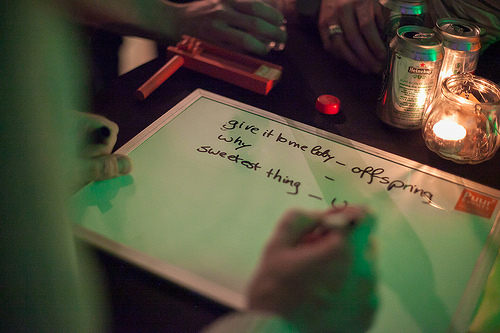 give it to me baby - offspring
why -
sweetest thing - u
Heineken